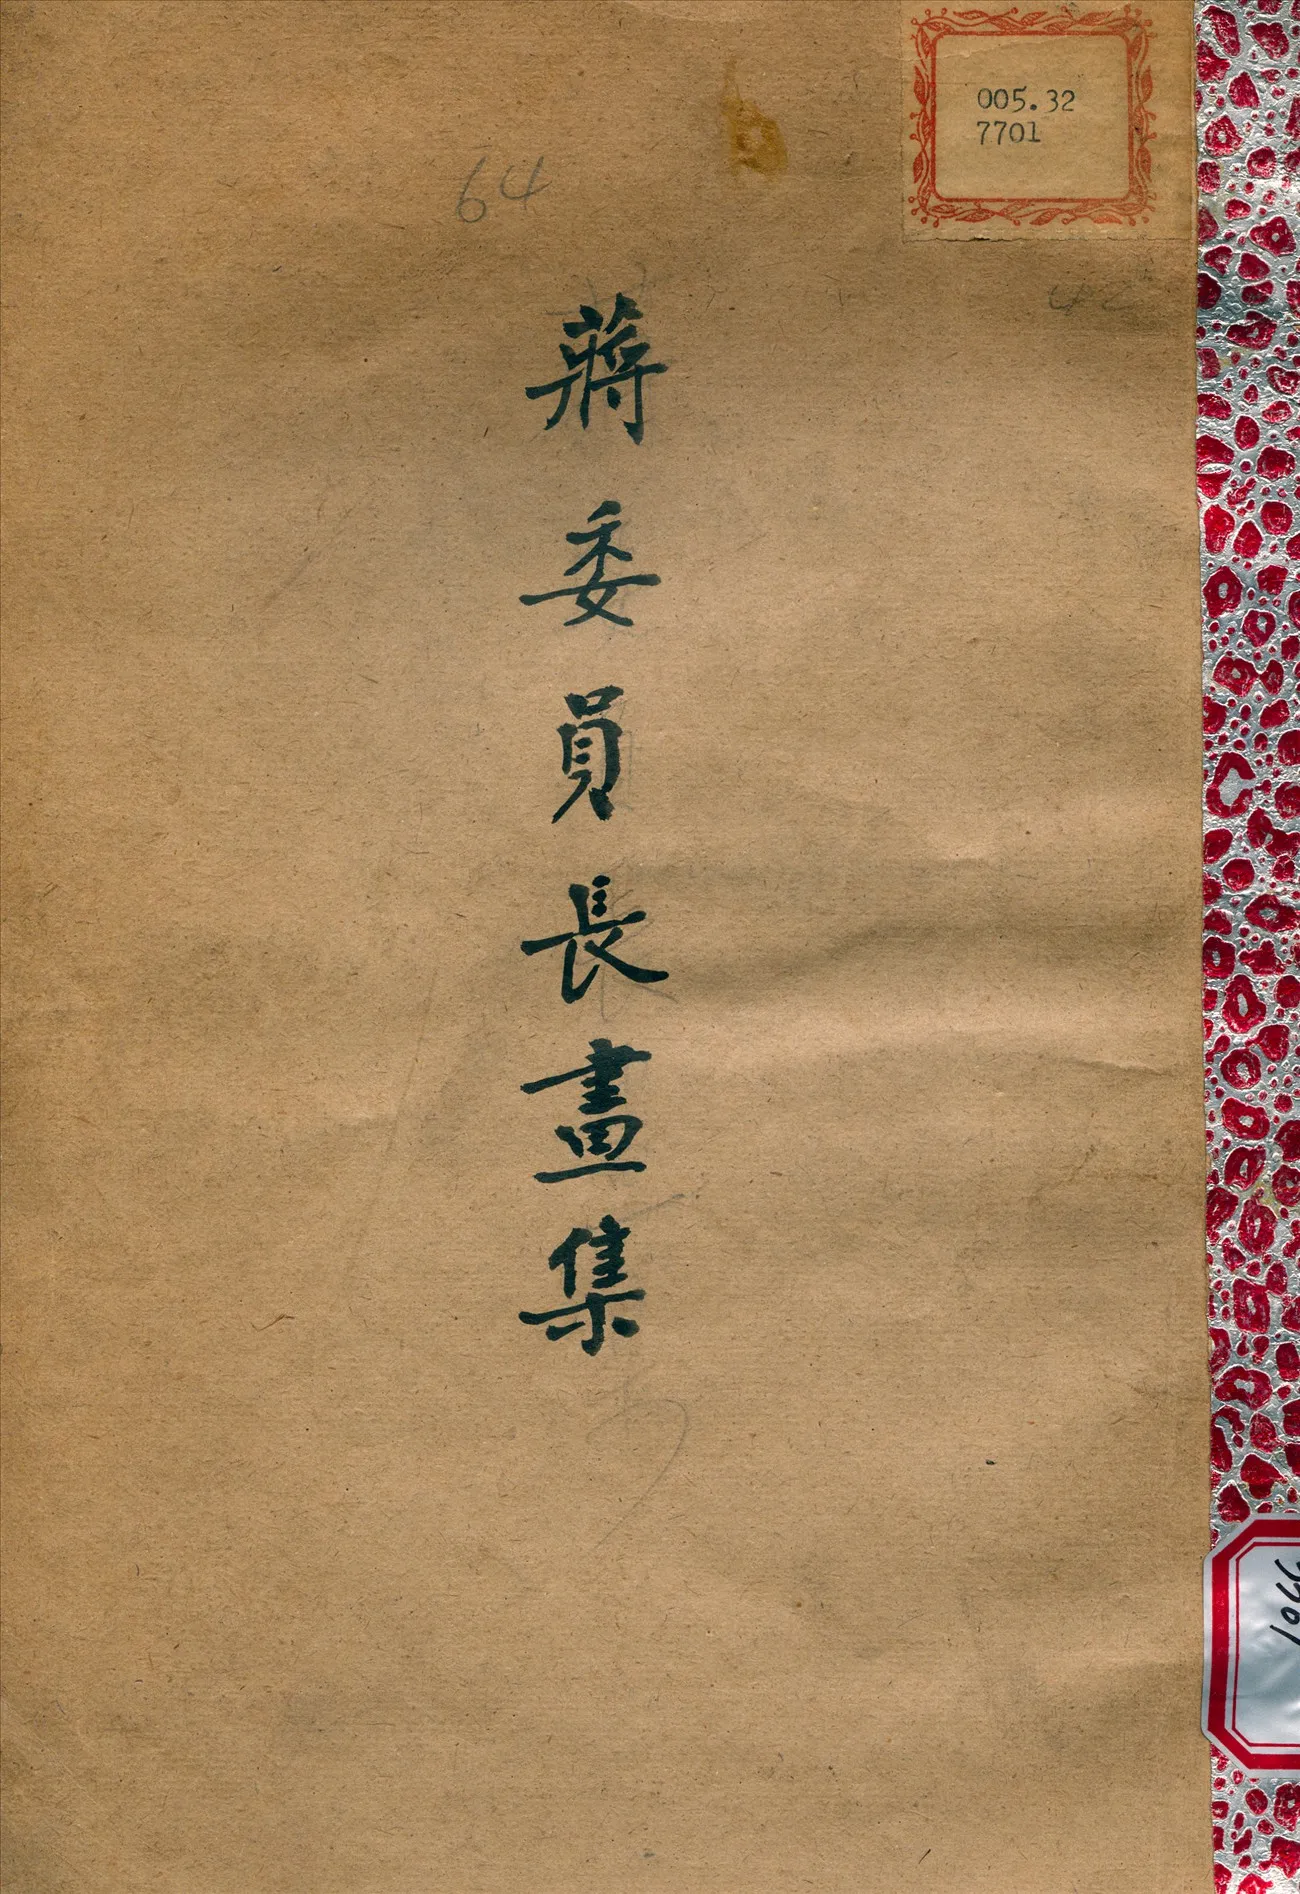 005.32
7701
64
蔣委員長畫集
1066